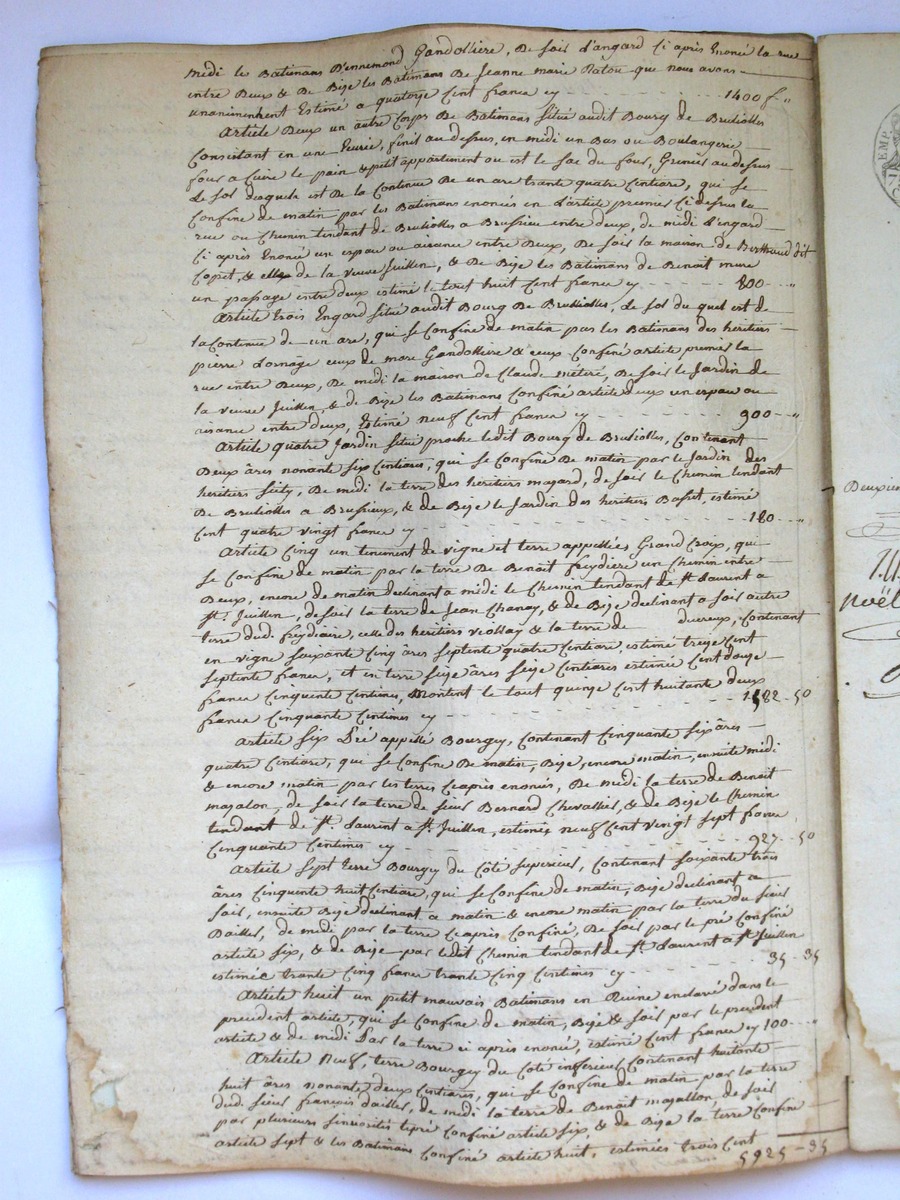 midi les Batimans D'ennemond Gandollière, De soir l'angard Ci après Enoncé la rue
entre Deux & De Bize les Batimans De Jeanne marie Ratou que nous avons
unanimenhent Estimé a quatorze Cent francs cy - - - 1400 f "
Article Deux un autre Corps De Batimans Situé audit Bourg de Brullolles
Consistant en une Ecurie, finil au dessus, en midi un Bas ou Boulangerie
four a Cuire le pain & petit appartement ou est le sac du four, Grenier au dessus
Le sol desquels est De la Contenue De un are trante quatre Centiare, qui se
Confine De matin par les Batimans enoncés en L'article premier Ci dessus la
rue ou Chemin tendant de Brulliolles a Brussieu entre deux, de midi L'engard
Ci après Enoncé un espau ou aisance entre Deux, De soir la maison de Berthaud dit
Copet, & celle de la veuve Juillien, & De Bize les Batimans de Benoit mure
un passage entre deux estimé le tout huit Cent francs cy - - - 800 - "
Article trois Engard Situé audit Bourg De Brulliolles, Le sol du quel est de
la Contenue de un are, qui se Confine de matin par les Batimans des heritiers
pierre Lornage ceux de marc Gandolliere & ceux Confiné article premier la
rue entre Deux, De midi la maison de Claude meteré, De soir le Jardin de
la veuve Juillien, & de Bize les Batimans Confiné article deux un espau ou
aisance entre deux, Estimé neuf Cent francs cy - - - 900 - "
Article quatre Jardin situé proche ledit Bourg de Brulliolles, Contenant
Deux âres nonante six Centiares, qui se Confine De matin par le Jardin des
heritiers Sully, De midi la terre des heritiers mazard, de soir le Chemin tendant
De Brulliolles a Brussieux, & de Bize le Jardin des heritiers Basset, estimé
Cent quatre vingt francs cy - - - 180 - "
Article Cinq un tenement de vigne et terre appellées Grand Croix, qui
se Confine de matin par la terre De Benoit freydiere un Chemin entre
Deux, encore de matin declinant a midi le Chemin tendant de St. Laurent a
St. Juillien, de soir la terre de Jean Chanay, & de Bize declinant a soir autre
terre dud. freydiaire, celle des heritiers viollay & la terre de Ducreux, Contenant
en vigne soixante Cinq âres septente quatre Centiare estimé treize Cent
septente francs, et en terre seize âres seize Centiares estimée Cent douze
francs Cinquante Centimes, Montent le tout quinze Cent huitante deux
francs Cinquante Centimes cy - - - 1582 - 50
Article six Pré appellé Bourgey, Contenant Cinquante six âres
quatre Centiare, qui se Confine De matin, Bize, encore matin, ensuite midi
& encore matin par les terres Ci après enoncés, De midi la terre de Benoit
mazalon, de soir la terre de sieur Bernard Chevallier, & de Bize le Chemin
tendant de St. Laurent a St. Juillien, estimée neuf Cent vingt sept francs
Cinquante Centimes cy - - - 927 - 50
Article sept terre Bourgey du Coté superieur, Contenant soixante trois
âres Cinquente huit Centiare, qui se Confine de matin, Bize declinant a
soir, ensuite Bize declinant a matin & encore matin par la terre du sieur
Dailler, de midi par la terre Ci après Confiné, De soir par le pré Confiné
article six, & de Bize par ledit Chemin tendant de St. Laurent a St. Juillien
estimée trante Cinq francs trante Cinq Centimes cy - - - 35 - 35
Article huit un petit mauvais Batimans en Ruine enclavé dans le
precident article, qui se Confine de matin, Bize & soir par le precident
article & de midi Par la terre ci après enoncé, estimé Cent francs cy 100 - "
Article Neuf, terre Bourgey du Coté inferieur Contenant huitante
huit âres nonante deux Centiares, qui se Confine de matin par la terre
dud. sieur françois dailler, de midi la terre de Benoit mazallon de soir
par plusieurs sinuosités le pré Confiné article six, & de Bize la terre Confiné
article sept & les Batimans Confiné article huit, estimées trois Cent
5925 - 35
Deuxie
noël